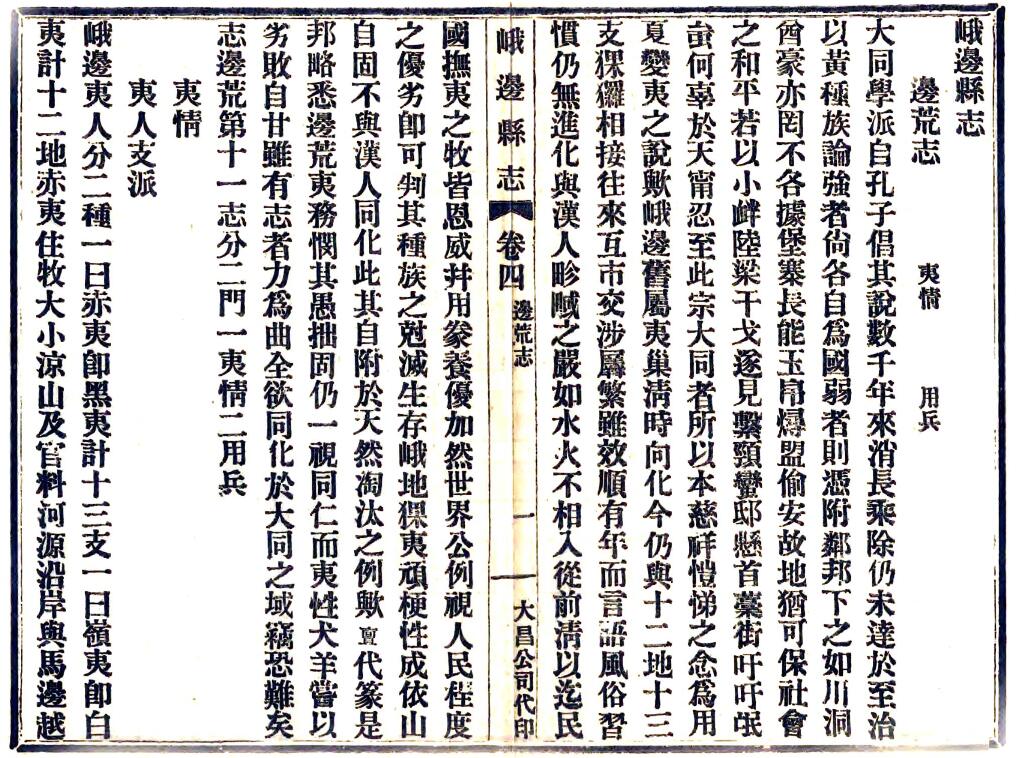 峨邊縣志
邊荒志 夷情 用兵
大同學派自孔子倡其說數千年來消長乘除仍未達於至治
以黃種族論強者尙各自爲國弱者則憑附鄰邦下之如川洞
酋豪亦罔不各據堡寨長能玉帛燖盟偷安故地猶可保社會
之和平若以小衅陸梁干戈遂見繫頸蠻邸懸首藁街吁吁氓
蚩何辜於天甯忍至此宗大同者所以本慈祥愷悌之念爲用
夏變夷之說歟峨邊舊屬夷巢淸時向化今仍與十二地十三
支猓玀相接往來互市交涉屬繁雖效順有年而言語風俗習
慣仍無進化與漢人畛畦之嚴如水火不相入從前淸以迄民
峨邊縣志 卷四 邊荒志 一 大昌公司代印
國撫夷之牧皆恩威幷用豢養優加然世界公例視人民程度
之優劣卽可判其種族之尅滅生存峨地猓夷頑梗性成依山
自固不與漢人同化此其自附於天然淘汰之例歟亶代篆是
邦略悉邊荒夷務憫其愚拙固仍一視同仁而夷性犬羊嘗以
劣敗自甘雖有志者力爲曲全欲同化於大同之域竊恐難矣
志邊荒第十一志分二門一夷情二用兵
夷情
夷人支派
峨邊夷人分二種一曰赤夷卽黑夷計十三支一曰嶺夷卽白
夷計十二地赤夷住牧大小涼山及官料河源沿岸與馬邊越